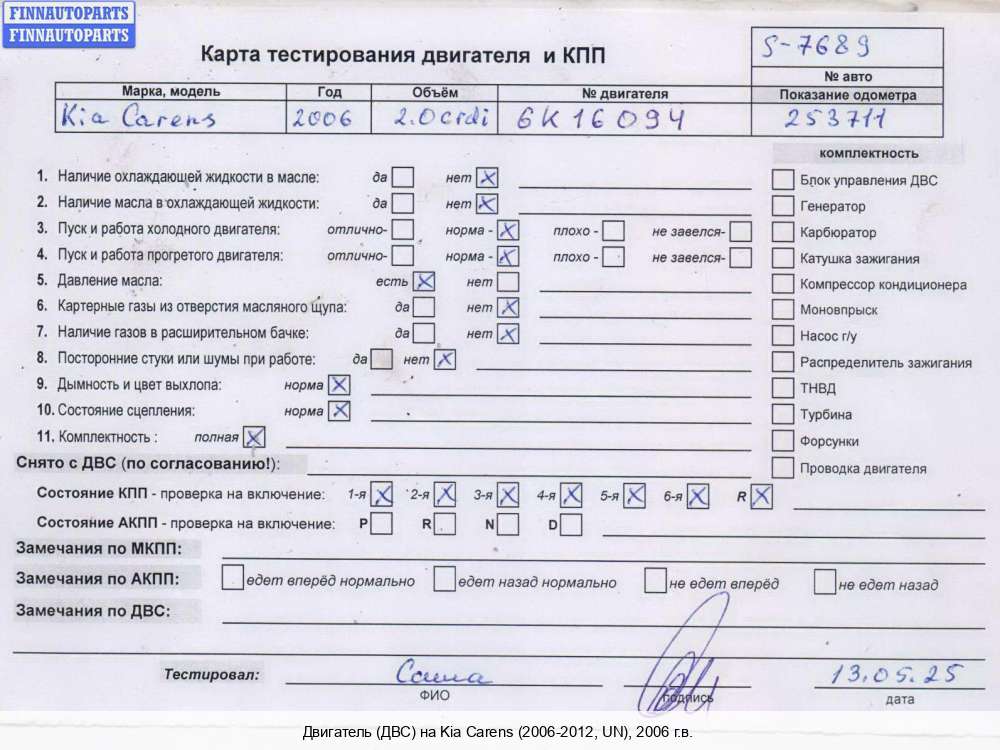 FINNAUTOPARTS
FINNAUTOPARTS
Карта тестирования двигателя и КПП
S-7689
№ авто
Марка, модель Год Объём № двигателя Показание одометра
Kia Carens 2006 2.0crdi 6K16094 253711
комплектность
1. Наличие охлаждающей жидкости в масле: да нет
Блок управления ДВС
2. Наличие масла в охлаждающей жидкости: да нет
Генератор
3. Пуск и работа холодного двигателя: отлично- норма - плохо - не завелся-
Карбюратор
4. Пуск и работа прогретого двигателя: отлично- норма - плохо - не завелся-
Катушка зажигания
5. Давление масла: есть нет
Компрессор кондиционера
6. Картерные газы из отверстия масляного щупа: да нет
Моновпрыск
7. Наличие газов в расширительном бачке: да нет
Насос г/у
8. Посторонние стуки или шумы при работе: да нет
Распределитель зажигания
9. Дымность и цвет выхлопа: норма
ТНВД
10. Состояние сцепления: норма
Турбина
11. Комплектность : полная
Форсунки
Снято с ДВС (по согласованию!):
Проводка двигателя
Состояние КПП - проверка на включение: 1-я 2-я 3-я 4-я 5-я 6-я R
Состояние АКПП - проверка на включение: P R N D
Замечания по МКПП:
Замечания по АКПП: едет вперёд нормально едет назад нормально не едет вперёд не едет назад
Замечания по ДВС:
Тестировал: Саша 13.05.25
ФИО подпись дата
Двигатель (ДВС) на Kia Carens (2006-2012, UN), 2006 г.в.